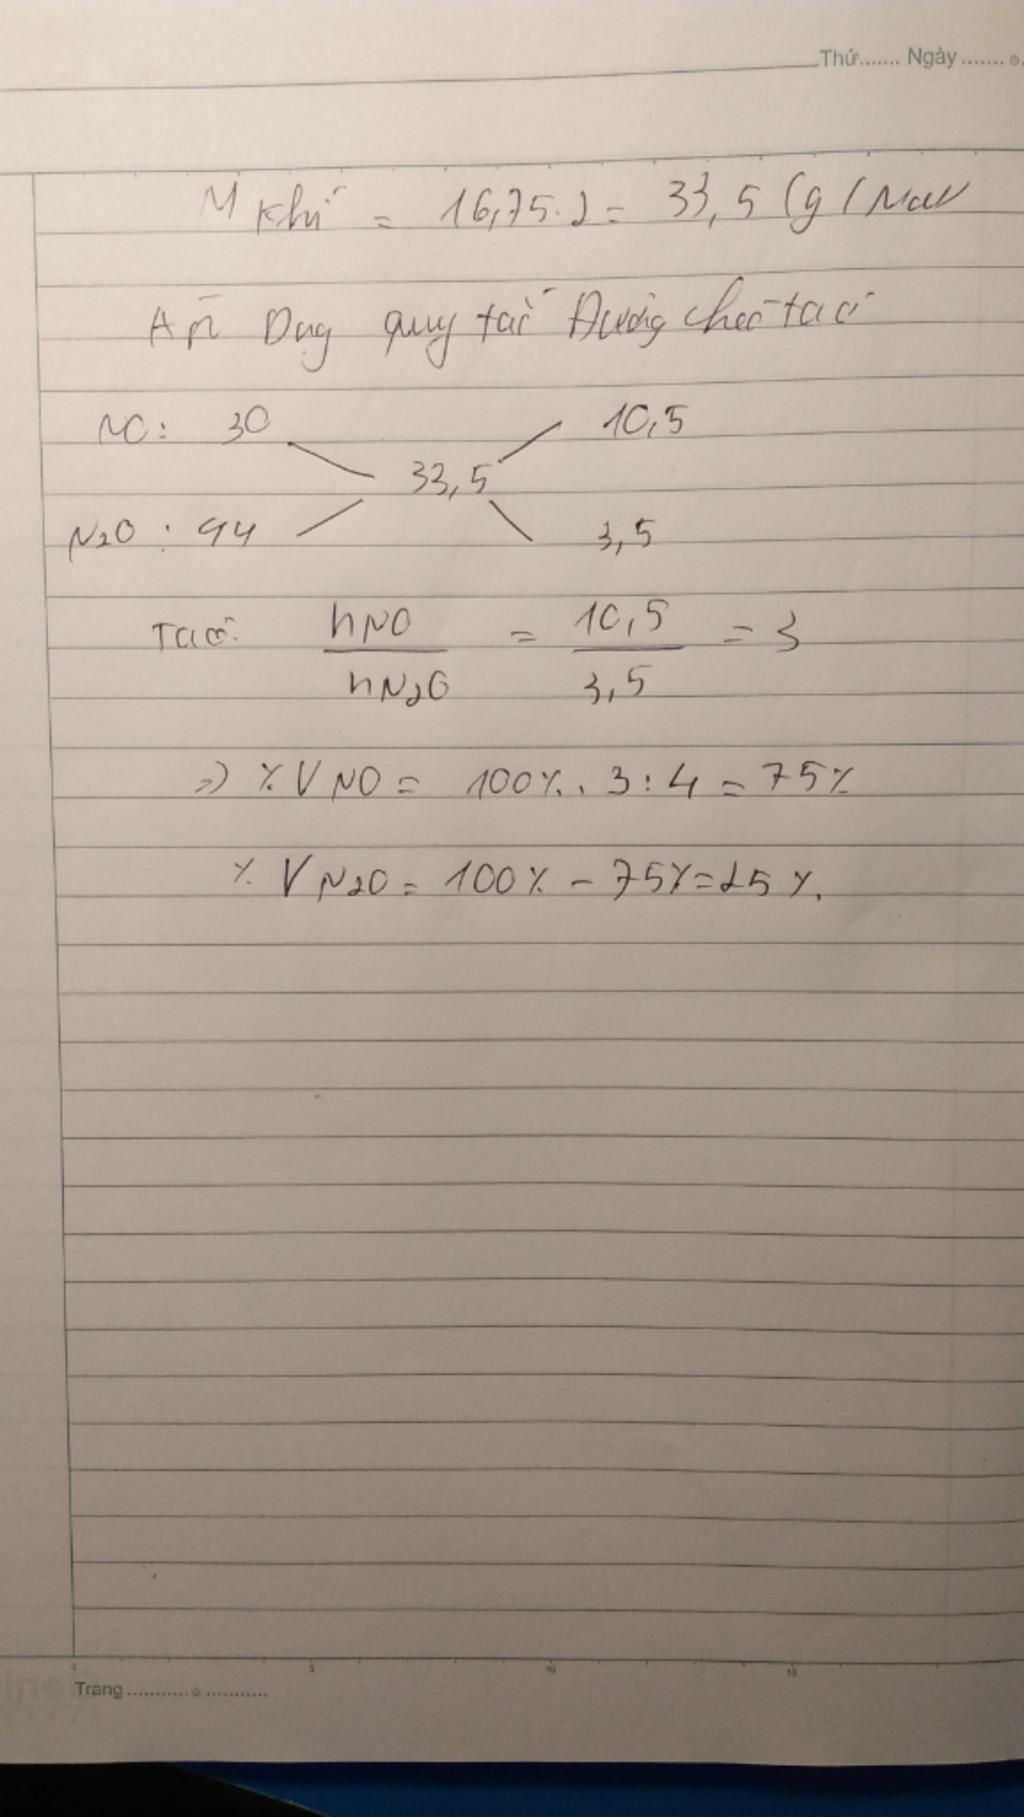 Thứ....... Ngày.......
M khí = 16,75.2 = 33,5 (g/mol
Áp Dụng quy tắc Đường chéo ta có
NO: 30 10,5
33,5
N2O : 44 3,5
Ta có: nNO / nN2O = 10,5 / 3,5 = 3
=> % V NO = 100%. 3:4 = 75%
% V N2O = 100% - 75% = 25%.
0 5 10 15
Trang